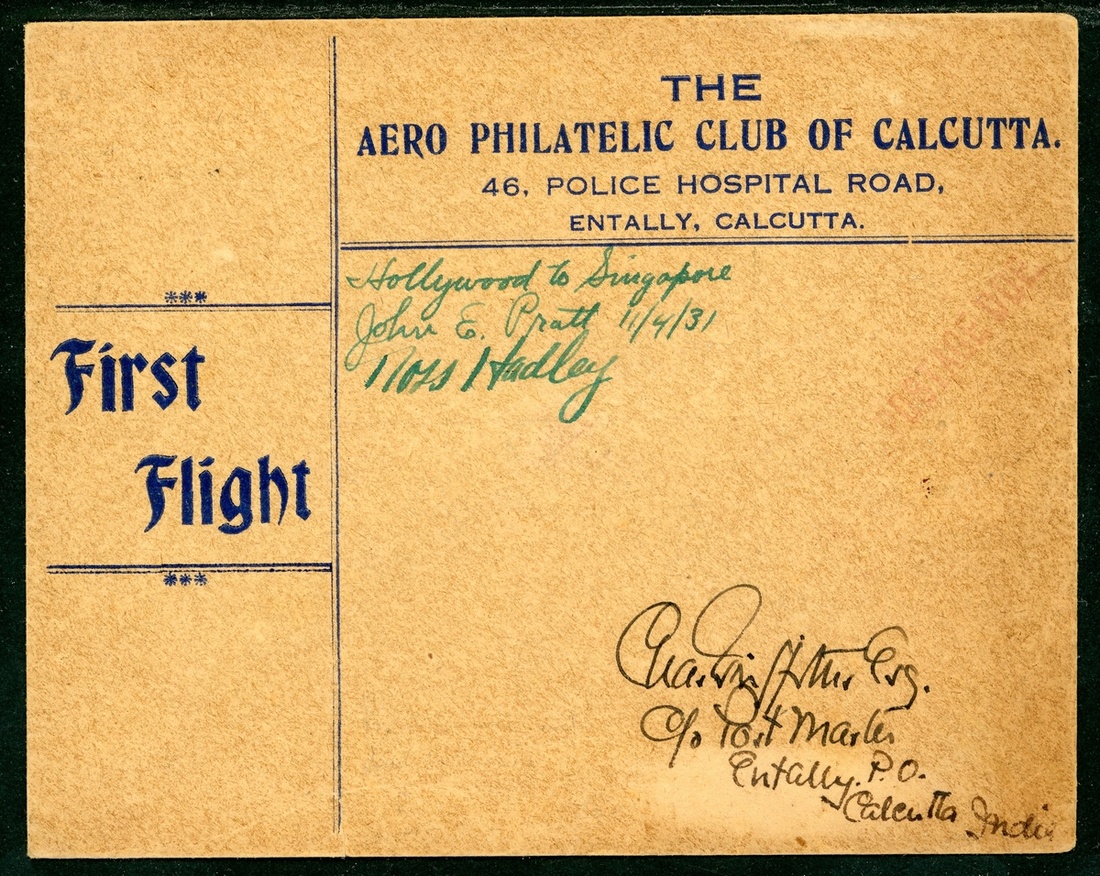 THE
AERO PHILATELIC CLUB OF CALCUTTA.
46, POLICE HOSPITAL ROAD,
ENTALLY, CALCUTTA.
***
First
Flight
***
Hollywood to Singapore
John E. Pratt 11/4/31
Ross Hadley
Esq.
C/o Post Master
Entally. P.O.
Calcutta India